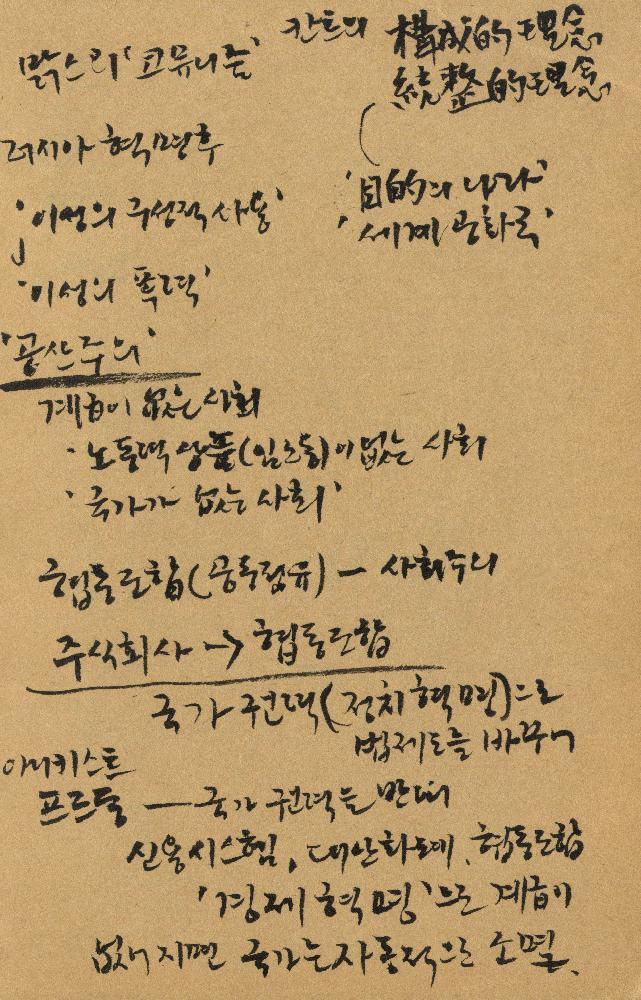 맑스의 '코뮤니즘'
칸트의 構成的 理念
統整的 理念
'目的의 나라'
'세계공화국'
러시아 혁명후
'이성의 구성적 사용'
'이성의 폭력'
'공산주의'
계급이 없는 사회
'노동력 상품(임노동)이 없는 사회
'국가가 없는 사회'
협동조합(공동점유) — 사회주의
주식회사 → 협동조합
국가권력(정치혁명)으로
법제도를 바꾸어
아나키스트
프르동 — 국가 권력을 반대
신용시스템, 대안화폐, 협동조합
'경제혁명'으로 계급이
없어지면 국가는 자동적으로 소멸.